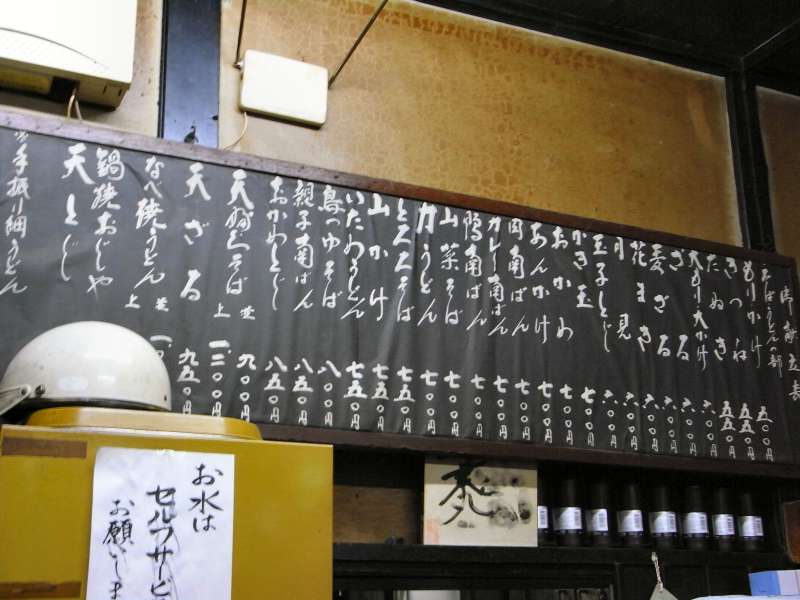 御献立表
そばうどん之部
もりかけ 五〇〇円
きつね 五五〇円
たぬき 五五〇円
大もり大かけ 六〇〇円
ざる 六〇〇円
麦ざる 六〇〇円
花まき 六〇〇円
月見 六〇〇円
玉子とじ 六〇〇円
かき玉 七〇〇円
おかめ 七〇〇円
あんかけ 七〇〇円
肉南ばん 七〇〇円
カレー南ばん 七〇〇円
南ばん 七〇〇円
山菜そば 七〇〇円
力うどん 七〇〇円
とろろそば 七五〇円
山かけ 七五〇円
いためうどん 七五〇円
鳥つゆそば 八〇〇円
親子南ばん 八五〇円
おかめとじ 八五〇円
天ぷらそば 並 九〇〇円
上 〇〇円
天ざる 九五〇円
なべ焼うどん 並
上
鍋焼おじや
天とじ
細うどん
お水は
セルフサービ
お願いしま